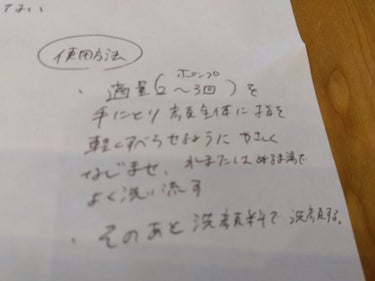 てない
使用方法
・適量(2〜3回)を
ポンプ
手にとり 顔全体に指を
軽くすべらせるように やさしく
なじませ、水またはぬるま湯で
よく洗い流す
・そのあと洗顔料で洗顔する。